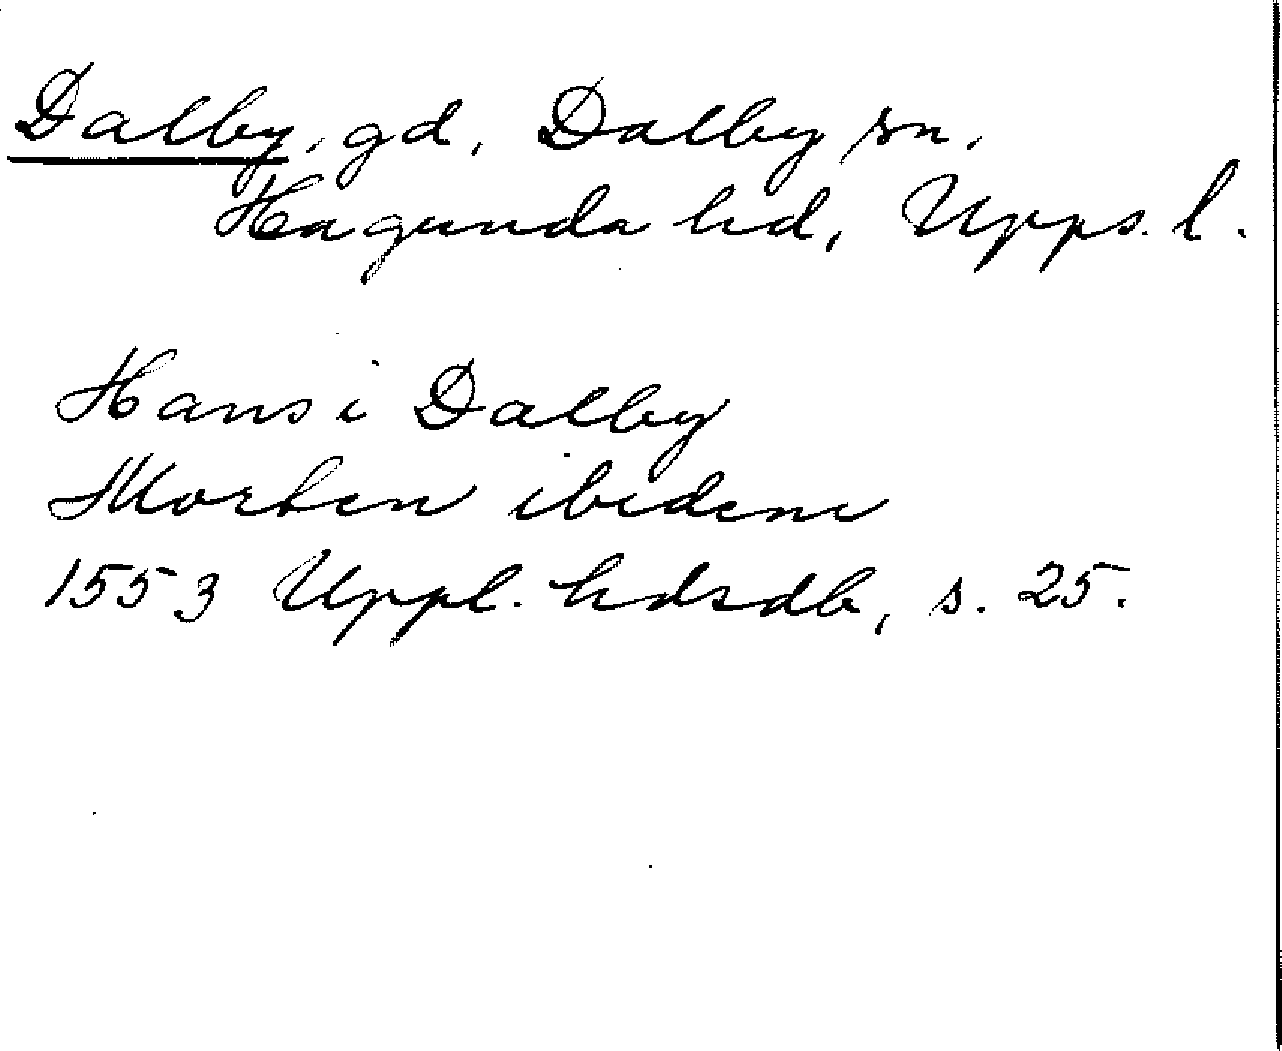 Dalby, gd, Dalby sn,
Hagunda hd, Upps. l.
Hans i Dalby
Morten ibidem
1553 Uppl. hdsdb, s. 25.